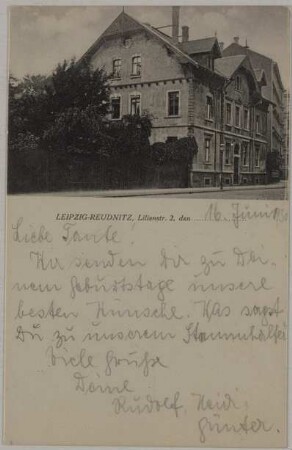 LEIPZIG-REUDNITZ, Lilienstr. 2, den 16. Juni
Liebe Tante!
Wir senden Dir zu Dei-
nem Geburtstage unsere
besten Wünsche. Was sagst
Du zu unserem Stammhalter
Viele Grüße
Deine
Rudolf, Heidi,
Günter.